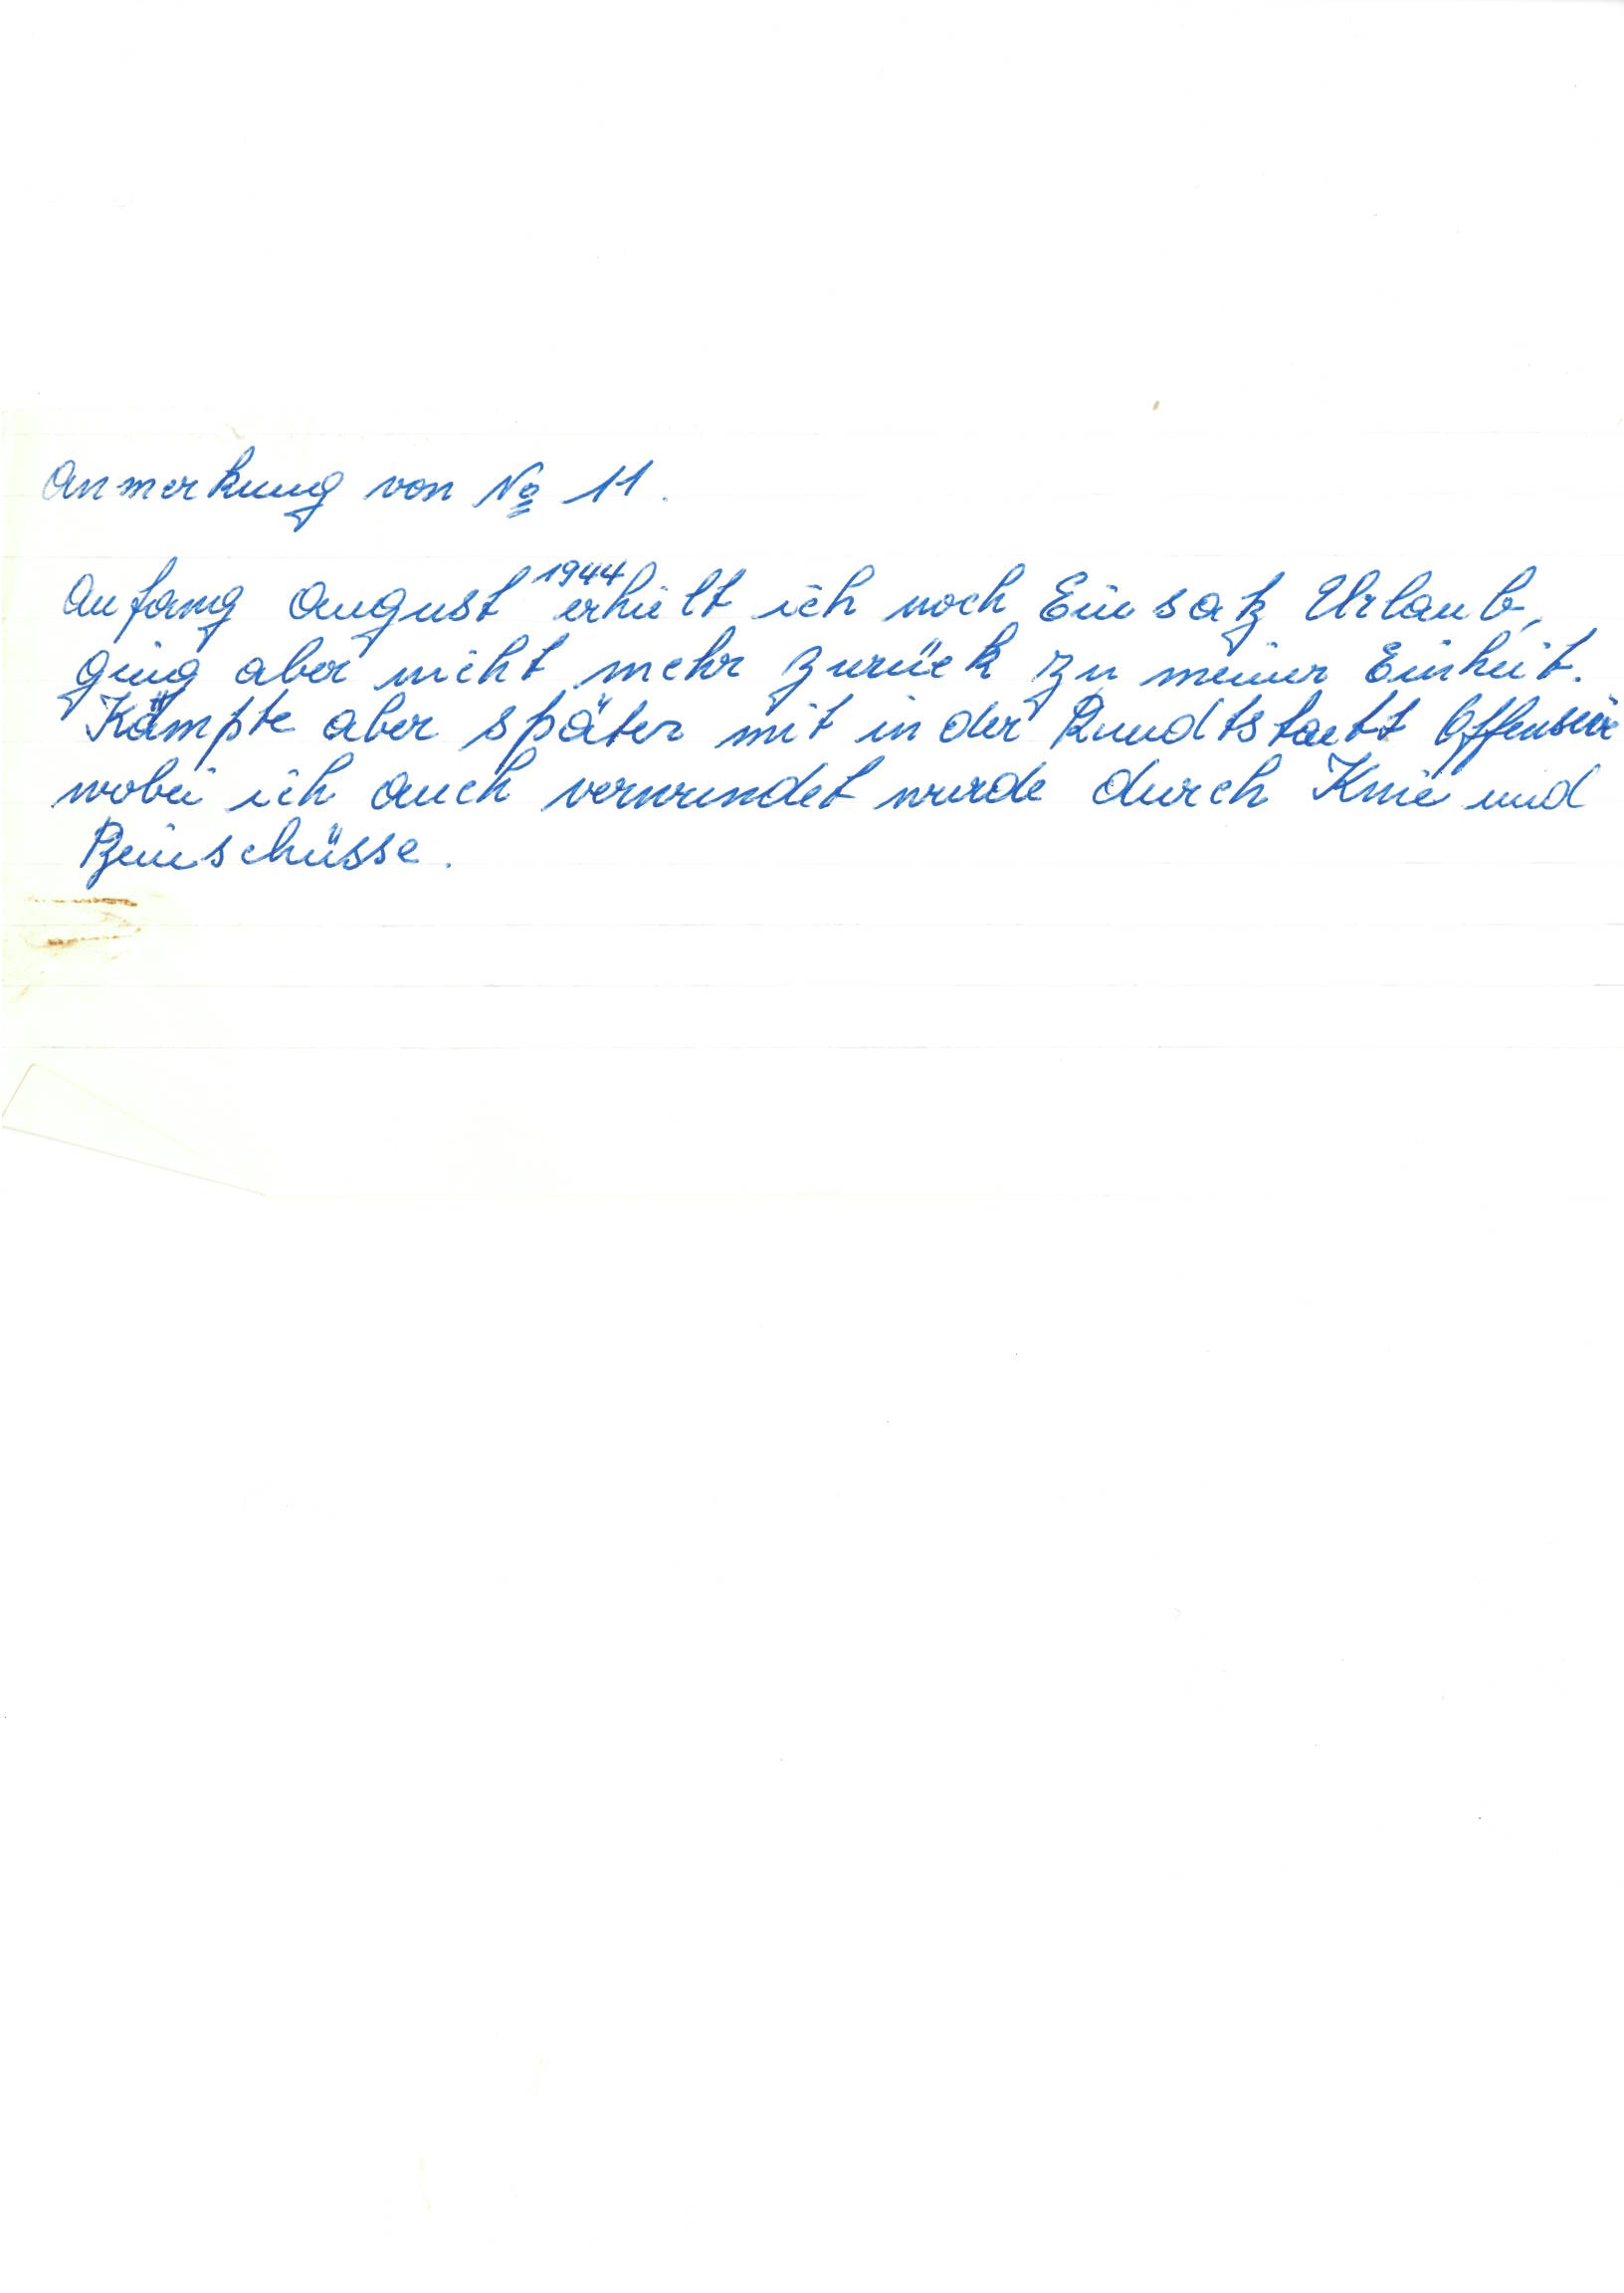 Anmerkung von No 11.
Anfang August 1944 erhielt ich noch Einsatz Urlaub,
ging aber nicht mehr zurück zu meiner Einheit.
Kämpte aber später mit in der Rundtstaett Offensive
wobei ich auch verwundet wurde durch Knie und
Beinschüsse.